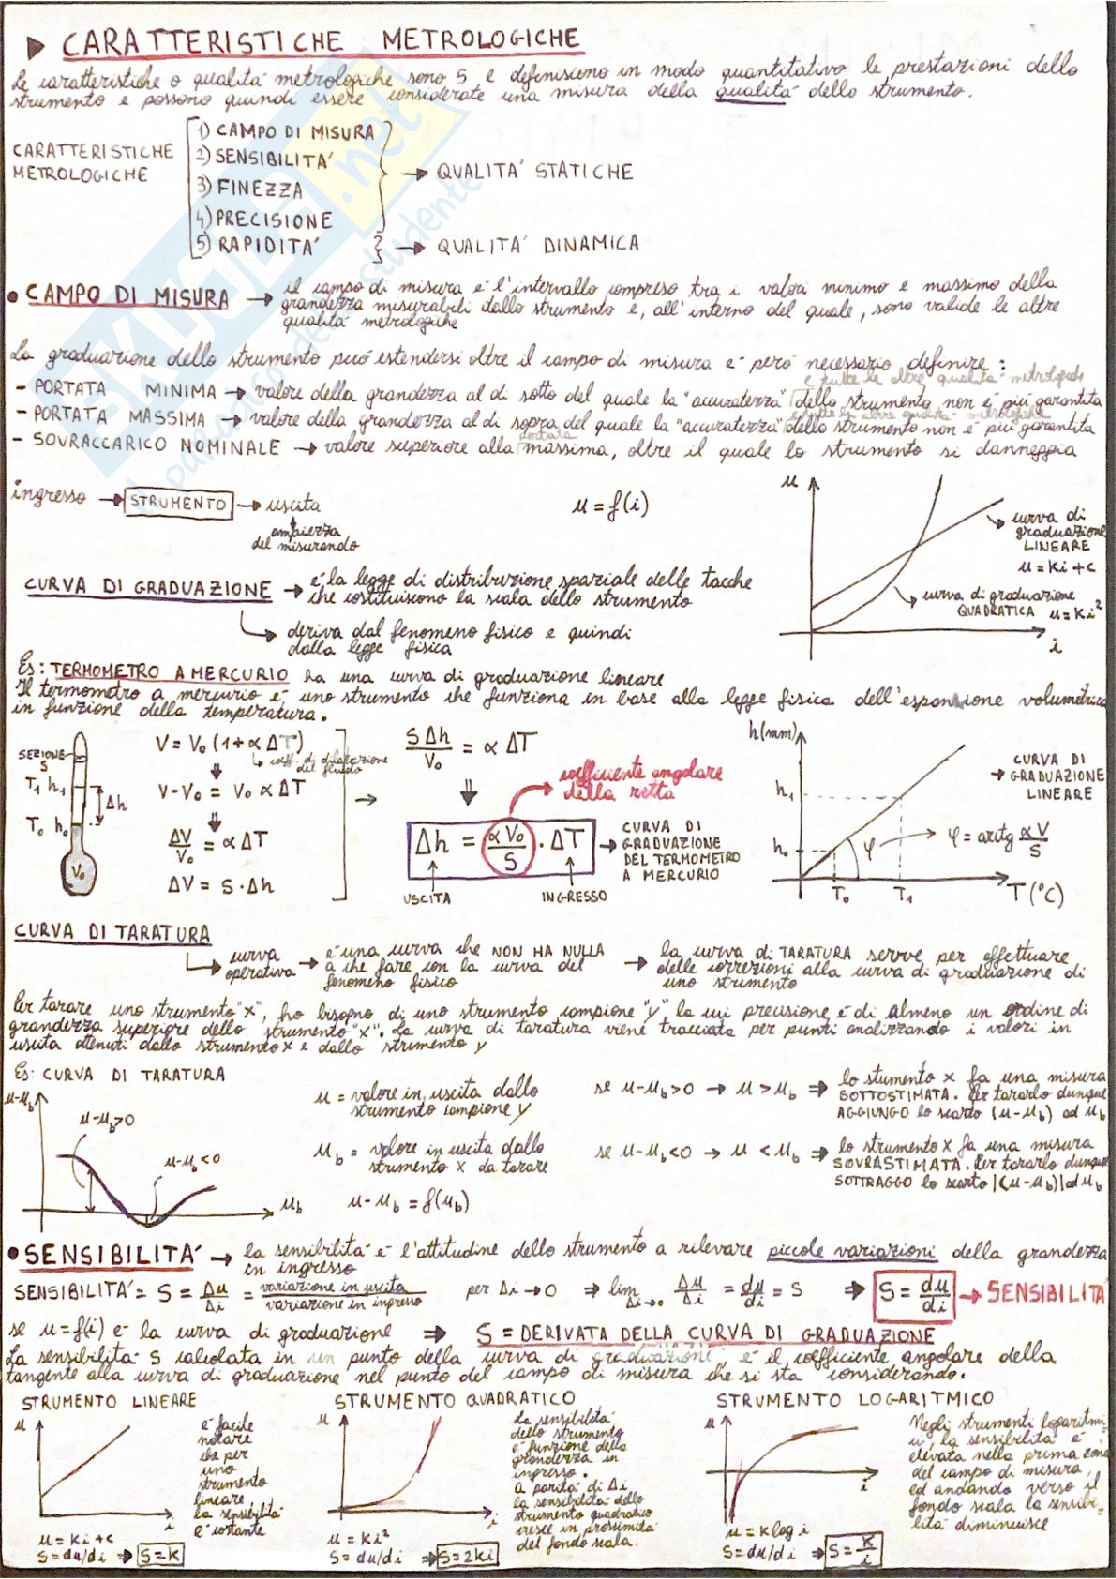 CARATTERISTICHE METROLOGICHE
Le caratteristiche o qualità metrologiche sono 5 e definiscono in modo quantitativo le prestazioni dello
strumento e possono quindi essere considerate una misura della qualità dello strumento.
CARATTERISTICHE METROLOGICHE
1) CAMPO DI MISURA
2) SENSIBILITA'
3) FINEZZA
4) PRECISIONE
→ QUALITA' STATICHE
5) RAPIDITA'
→ QUALITA' DINAMICA
• CAMPO DI MISURA → il campo di misura è l'intervallo compreso tra i valori minimo e massimo della
grandezza misurabili dallo strumento e, all'interno del quale, sono valide le altre
qualità metrologiche
La graduazione dello strumento può estendersi oltre il campo di misura è però necessario definire:
e tutte le altre qualità metrologiche
- PORTATA MINIMA → valore della grandezza al di sotto del quale la "accuratezza" dello strumento non è più garantita
- PORTATA MASSIMA → valore della grandezza al di sopra del quale la "accuratezza" dello strumento non è più garantita
- SOVRACCARICO NOMINALE → valore superiore alla portata massima, oltre il quale lo strumento si danneggia
ingresso → STRUMENTO → uscita
ampiezza
del misurando
u = f(i)
u
curva di
graduazione
LINEARE
u = Ki + c
curva di graduazione
QUADRATICA u = Ki²
i
CURVA DI GRADUAZIONE → è la legge di distribuzione spaziale delle tacche
che costituiscono la scala dello strumento
deriva dal fenomeno fisico e quindi
dalla legge fisica
Es: TERMOMETRO A MERCURIO ha una curva di graduazione lineare
Il termometro a mercurio è uno strumento che funziona in base alla legge fisica dell'espansione volumetrica
in funzione della temperatura.
SEZIONE
S
T₁ h₁
Δh
T₀ h₀
V₀
V = V₀ (1 + α ΔT)
coeff. di dilatazione
del fluido
V - V₀ = V₀ α ΔT
ΔV/V₀ = α ΔT
ΔV = S · Δh
SΔh/V₀ = α ΔT
coefficiente angolare
della retta
Δh = αV₀/S · ΔT
USCITA
INGRESSO
CURVA DI
GRADUAZIONE
DEL TERMOMETRO
A MERCURIO
h(mm)
h₁
h₀
φ
T₀ T₁
T(°C)
CURVA DI
GRADUAZIONE
LINEARE
φ = arctg αV/S
CURVA DI TARATURA
curva
operativa
→ è una curva che NON HA NULLA
a che fare con la curva del
fenomeno fisico
→ la curva di TARATURA serve per effettuare
delle correzioni alla curva di graduazione di
uno strumento
Per tarare uno strumento "x", ho bisogno di uno strumento campione "y" la cui precisione è di almeno un ordine di
grandezza superiore dello strumento "x". La curva di taratura viene tracciata per punti analizzando i valori in
uscita ottenuti dallo strumento x e dallo strumento y
Es: CURVA DI TARATURA
u-u_b
u-u_b>0
u-u_b<0
u_b
u = valore in uscita dallo
strumento campione y
u_b = valore in uscita dallo
strumento x da tarare
u-u_b = f(u_b)
se u-u_b>0 → u>u_b ⇒ lo stumento x fa una misura
SOTTOSTIMATA. Per tararlo dunque
AGGIUNGO lo scarto (u-u_b) ad u_b
se u-u_b<0 → u<u_b ⇒ lo strumento x fa una misura
SOVRASTIMATA. Per tararlo dunque
SOTTRAGGO lo scarto |(u-u_b)| ad u_b
• SENSIBILITA' → la sensibilità è l'attitudine dello strumento a rilevare piccole variazioni della grandezza
in ingresso
SENSIBILITA' = S = Δu/Δi = variazione in uscita/variazione in ingresso per Δi→0 ⇒ lim Δi→0 Δu/Δi = du/di = S ⇒ S = du/di → SENSIBILITA'
se u=f(i) è la curva di graduazione ⇒ S = DERIVATA DELLA CURVA DI GRADUAZIONE
La sensibilità S calcolata in un punto della curva di graduazione è il coefficiente angolare della
tangente alla curva di graduazione nel punto del campo di misura che si sta considerando.
STRUMENTO LINEARE
u
i
è facile
notare
che per
uno
strumento
lineare,
la sensibilità
è costante
u = Ki + c
S = du/di ⇒ S = K
STRUMENTO QUADRATICO
u
i
La sensibilità
dello strumento
è funzione della
grandezza in
ingresso.
a parità di Δi
la sensibilità dello
strumento quadratico
cresce in prossimità
del fondo scala.
u = Ki²
S = du/di ⇒ S = 2Ki
STRUMENTO LOGARITMICO
u
i
Negli strumenti logaritmi
ci, la sensibilità è
elevata nella prima zona
del campo di misura,
ed andando verso il
fondo scala la sensibi-
lità diminuisce
u = K log i
S = du/di ⇒ S = K/i